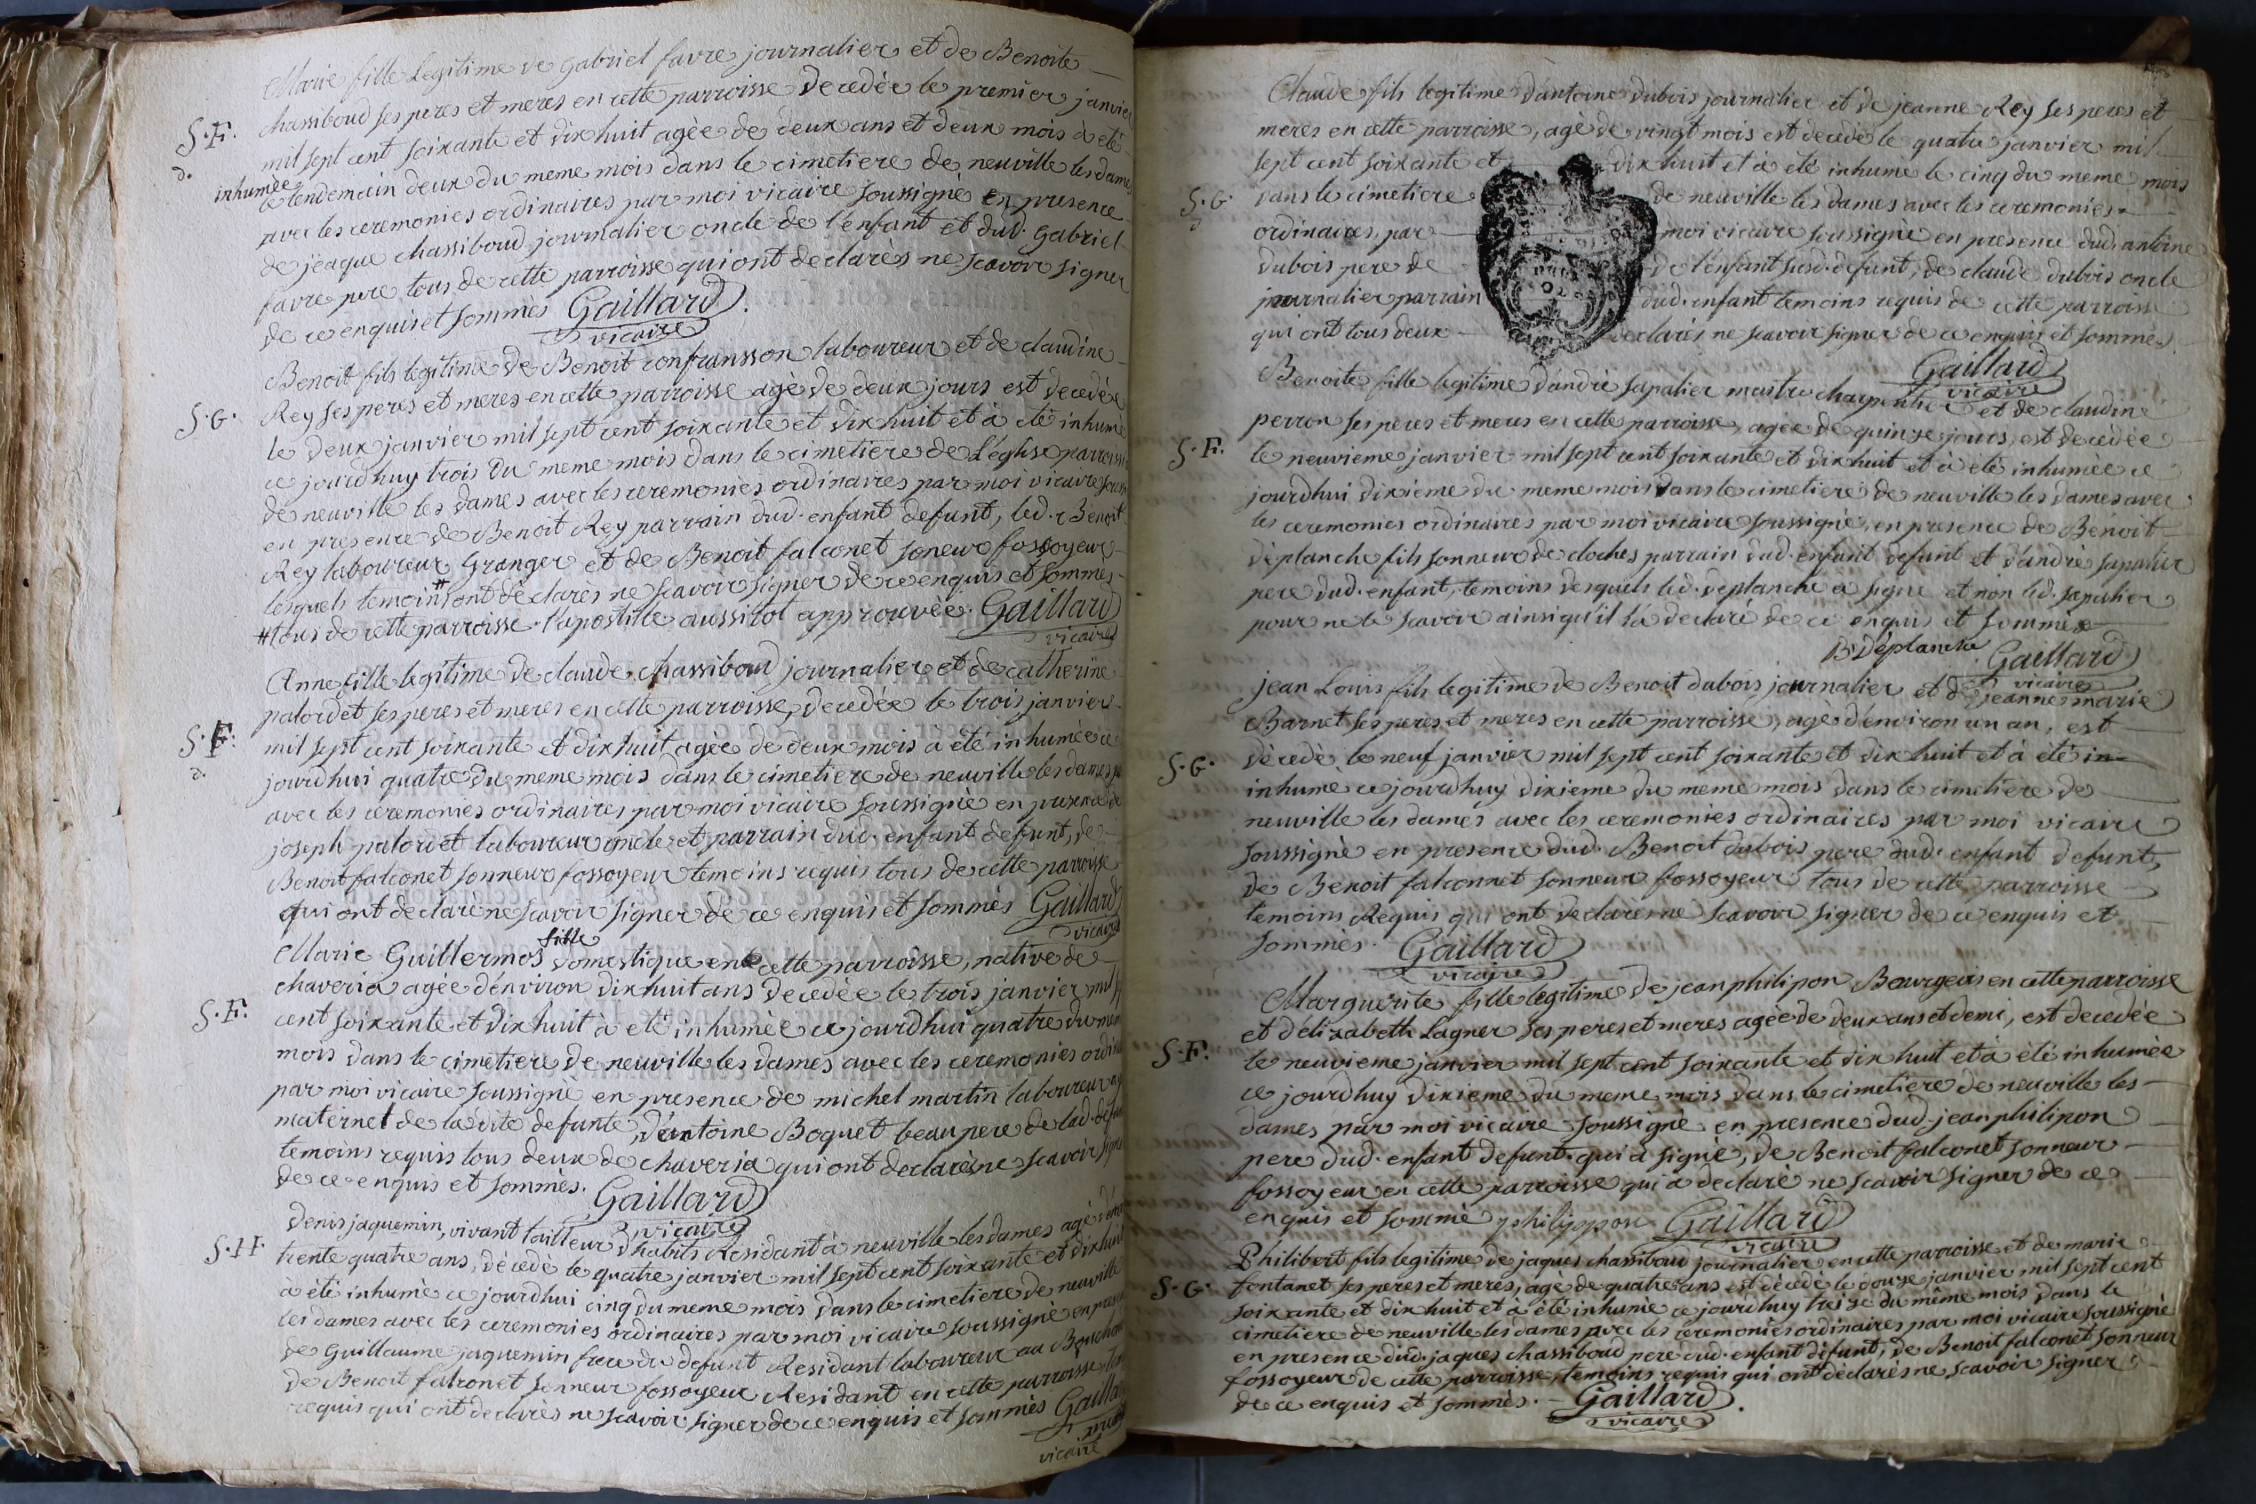 Marie fille legitime de gabriel favre journalier et de Benoite
chassiboud ses peres et meres en cette parroisse decedèe le premier janvier
S. F.
mil sept cent soixante et dix huit agèe de deux ans et deux mois à etè
d.
inhumèe
le lendemain deux du meme mois dans le cimetiere de neuville les dames
avec les ceremonies ordinaires par moi vicaire soussignè en presence
de jeaque chassiboud journalier oncle de l'enfant et dud. gabriel
favre pere tous de cette parroisse qui ont declarès ne scavoir signer
de ce enquis et sommès Gaillard
vicaire
Benoit fils legitime de Benoit confransson laboureur et de claudine
S. G.
Rey ses peres et meres en cette parroisse agè de deux jours est decedè
le deux janvier mil sept cent soixante et dix huit et à etè inhumè
ce jourd'huy trois du meme mois dans le cimetiere de l'eglise parroissi
de neuville les dames avec les ceremonies ordinaires par moi vicaire souss
en presence de Benoit Rey parrain dud. enfant defunt, led. Benoit
Rey laboureur Granger et de Benoit falconet soneur fossoyeur
lesquels temoins # ont declarès ne scavoir signer de ce enquis et sommès
# tous de cette parroisse. l'apostille aussitot approuvèe. Gaillard
vicaire
Anne fille legitime de claude chassiboud journalier et de catherine
palordet ses peres et meres en cette parroisse, decedèe le trois janvier
S. F.
mil sept cent soixante et dix huit agèe de deux mois a etè inhumèe ce
d.
jourd'hui quatre du meme mois dans le cimetiere de neuville les dames
avec les ceremonies ordinaires par moi vicaire soussignè en presence de
joseph palordet laboureur oncle et parrain dud. enfant defunt, de
Benoit falconet sonneur fossoyeur temoins requis tous de cette parroisse
qui ont declarè ne scavoir signer de ce enquis et sommès Gaillard
vicaire
fille
Marie Guillermos domestique en cette parroisse, native de
chaveria agèe d'environ dix huit ans decedèe le trois janvier mil sept
S. F.
cent soixante et dix huit à etè inhumèe ce jourd'hui quatre du meme
mois dans le cimetiere de neuville les dames avec les ceremonies ordin
par moi vicaire soussignè en presence de michel martin laboureur
maternel de la dite defunte, d'antoine Boquet beau pere de lad. defun
temoins requis tous deux de chaveria qui ont declarès ne scavoir signer
de ce enquis et sommès. Gaillard
vicaire
Denis jaquemin, vivant tailleur d'habits Residant à neuville les dames agè d'env
S. H
trente quatre ans, dècedè le quatre janvier mil sept cent soixante et dix huit
à ètè inhumè ce jourd'hui cinq du meme mois dans le cimetiere de neuville
les dames avec les ceremonies ordinaires par moi vicaire soussignè en pres
de Guillaume jaquemin frere du defunt Residant laboureur au
de Benoit falconet sonneur fossoyeur Residant en cette parroisse, tem
requis qui ont declarès ne scavoir signer de ce enquis et sommès Gaillard
vicaire
Claude fils legitime d'antoine dubois journalier et de jeanne Rey ses peres et
meres en cette parroisse, agè de vingt mois est decedè le quatre janvier mil
sept cent soixante et dix huit et à etè inhumè le cinq du meme mois
S. G.
d
dans le cimetiere de neuville les dames avec les ceremonies
ordinaires, par moi vicaire soussignè en presence dud. antoine
dubois pere de de l'enfant susd. defunt, de claude dubois oncle
journalier parrain dud. enfant temoins requis de cette parroisse
qui ont tous deux declarès ne scavoir signer de ce enquis et sommès.
Gaillard
vicaire
Benoite fille legitime d'andrè sapalier maitre charpentier et de claudine
perron ses peres et meres en cette parroisse, agèe de quinze jours, est decèdèe
S. F.
le neuvieme janvier mil sept cent soixante et dix huit et à etè inhumèe ce
jourd'hui dixieme du meme mois dans le cimetiere de neuville les dames avec
les ceremonies ordinaires par moi vicaire soussignè, en presence de Benoit
dèplanche fils sonneur de cloches parrain dud. enfant defunt et d'andrè sapalier
pere dud. enfant, temoins desquels led. deplanche a signè et non led. sapalier
pour ne le scavoir ainsi qu'il l'à declarè de ce enquis et sommè
B Dèplanche Gaillard
vicaire
jean Louis fils legitime de Benoit dubois journalier et de jeanne marie
Barnet ses peres et meres en cette parroisse, agè d'environ un an, est
S. G.
dècedè le neuf janvier mil sept cent soixante et dix huit et à ètè in=
inhumè ce jourd'huy dixieme du meme mois dans le cimetiere de
neuville les dames avec les ceremonies ordinaires par moi vicaire
soussignè en presence dud. Benoit dubois pere dud. enfant defunt,
de Benoit falconnet sonneur fossoyeur tous de cette parroisse
temoins Requis qui ont declarès ne scavoir signer de ce enquis et
sommès. Gaillard
vicaire
Marguerite fille legitime de jean philipon Bourgeois en cette parroisse
et d'elizabeth Lagner ses peres et meres agèe de deux ans et demi, est decedèe
S. F.
le neuvieme janvier mil sept cent soixante et dix huit et à ètè inhumèe
ce jourd'huy dixieme du meme mois dans le cimetiere de neuville les
dames par moi vicaire soussignè en presence dud. jean philipon
pere dud. enfant defunt. qui a signè, de Benoit falconet sonneur
fossoyeur en cette parroisse qui a declarè ne scavoir signer de ce
enquis et sommè philippon Gaillard
vicaire
Philibert fils legitime de jaques chassiboud journalier en cette parroisse et de marie
S. G.
fontanet ses peres et meres, agè de quatre ans est dècèdè le douze janvier mil sept cent
soixante et dix huit et à ètè inhumè ce jourd'huy treize du même mois dans le
cimetiere de neuville les dames avec les ceremonies ordinaires par moi vicaire soussignè
en presence dud. jaques chassiboud pere dud. enfant defunt, de Benoit falconet sonneur
fossoyeur de cette parroisse, temoins requis qui ont declarès ne scavoir signer
de ce enquis et sommès. Gaillard.
vicaire